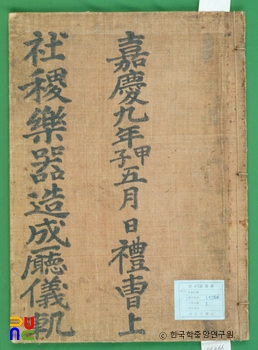 嘉慶九年甲子五月 日禮曺上
社稷樂器造成廳儀軌
ⓒ 한국학중앙연구원